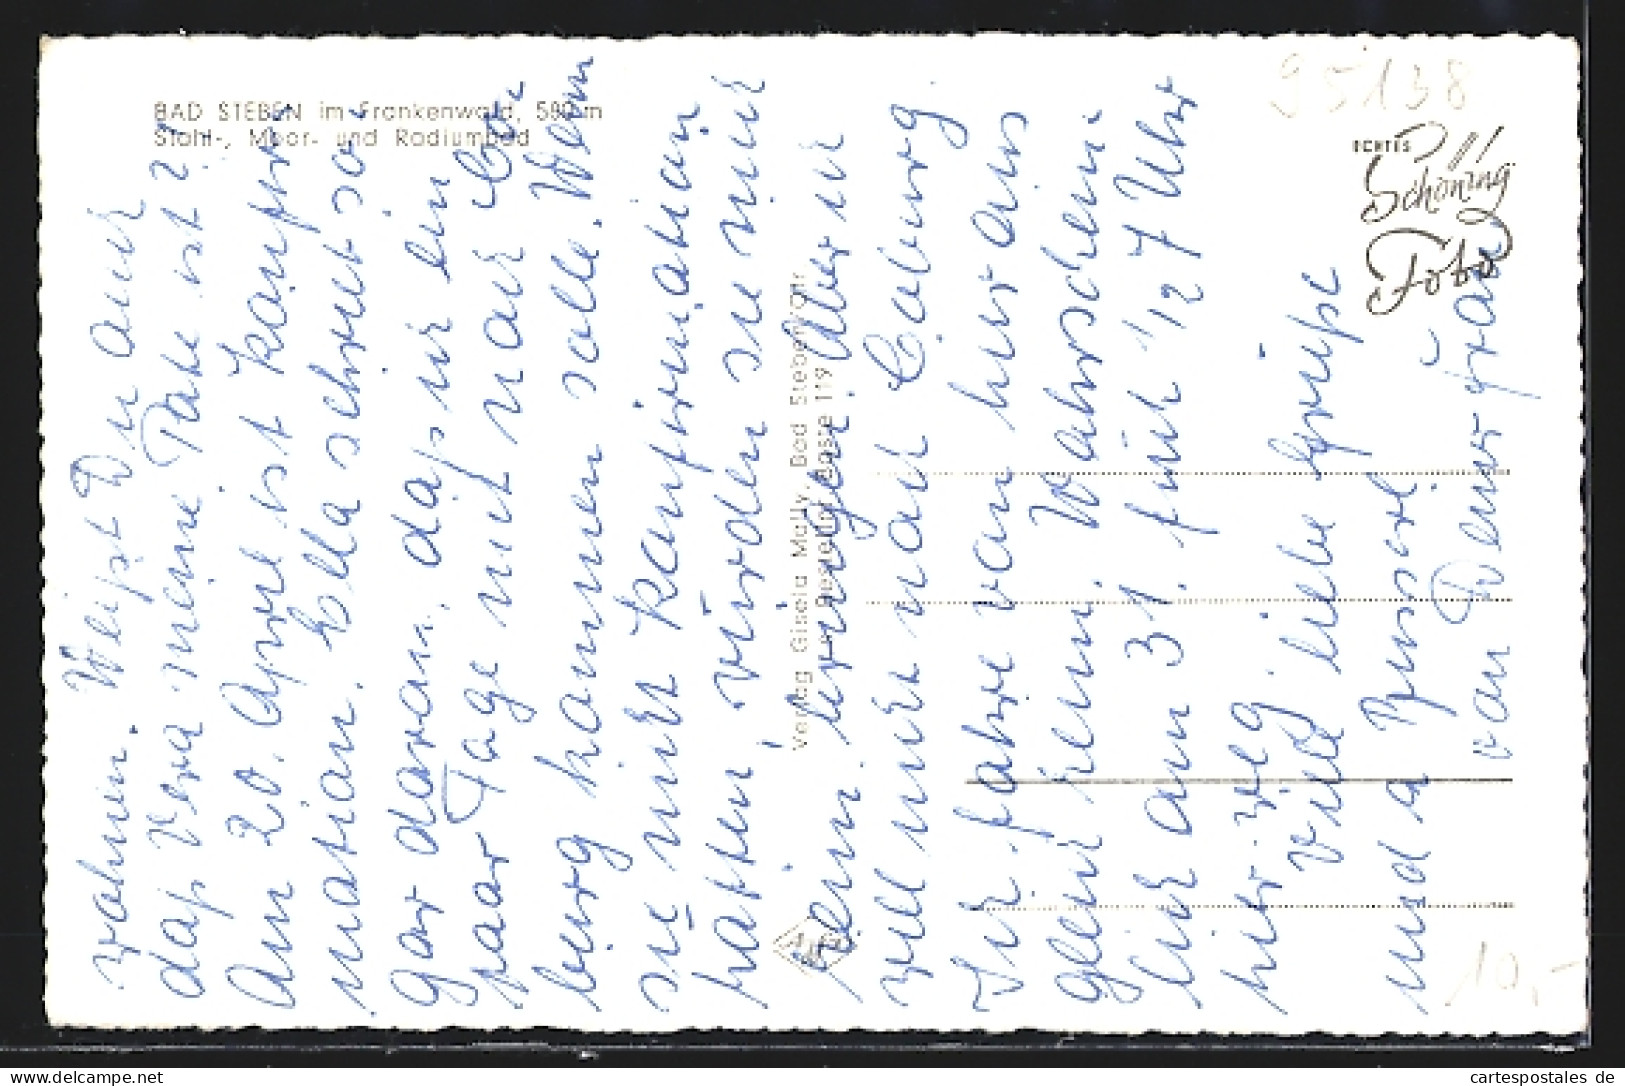 BAD STEBEN im Frankenwald, 580 m
Stahl-, Moor- und Radiumbad
95138
ECHTES
Schöning
Foto
wohnen. Weißt Du auch
daß Vera meine Pate ist?
Am 20. April ist Konfir-
mation. Ella schreibt so-
gar davon, daß ich ein
paar Tage mit nach Co-
burg kommen solle. Wenn
sie nicht Konfirmation
hätten, würden sie mich
heim bringen. Aber ich
will nicht nach Coburg.
Ich fahre von hier aus
gleich heim. Wahrschein-
lich am 31. früh 1/27 Uhr
hier weg.
Viele liebe Grüße
und a Busserl
von Deiner Frau
Verlag Gisela Mally, Bad Steben/Ofr.
119
10,-
cartespostales.de
www.delcampe.net